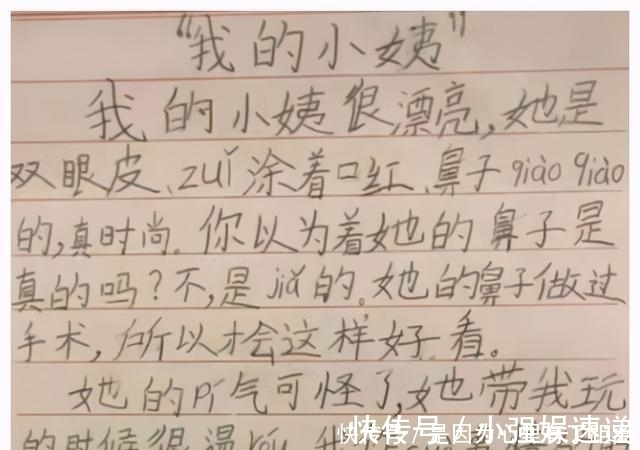 “我的小姨”
我的小姨很漂亮,她是
双眼皮、zuǐ涂着口红、鼻子qiào qiào
的,真时尚。你以为着她的鼻子是
真的吗?不,是jiǎ的。她的鼻子做过
手术,所以才会这样好看。
她的pí气可怪了,她带我玩
的时候很温róu,我
快传号/小强娱速递